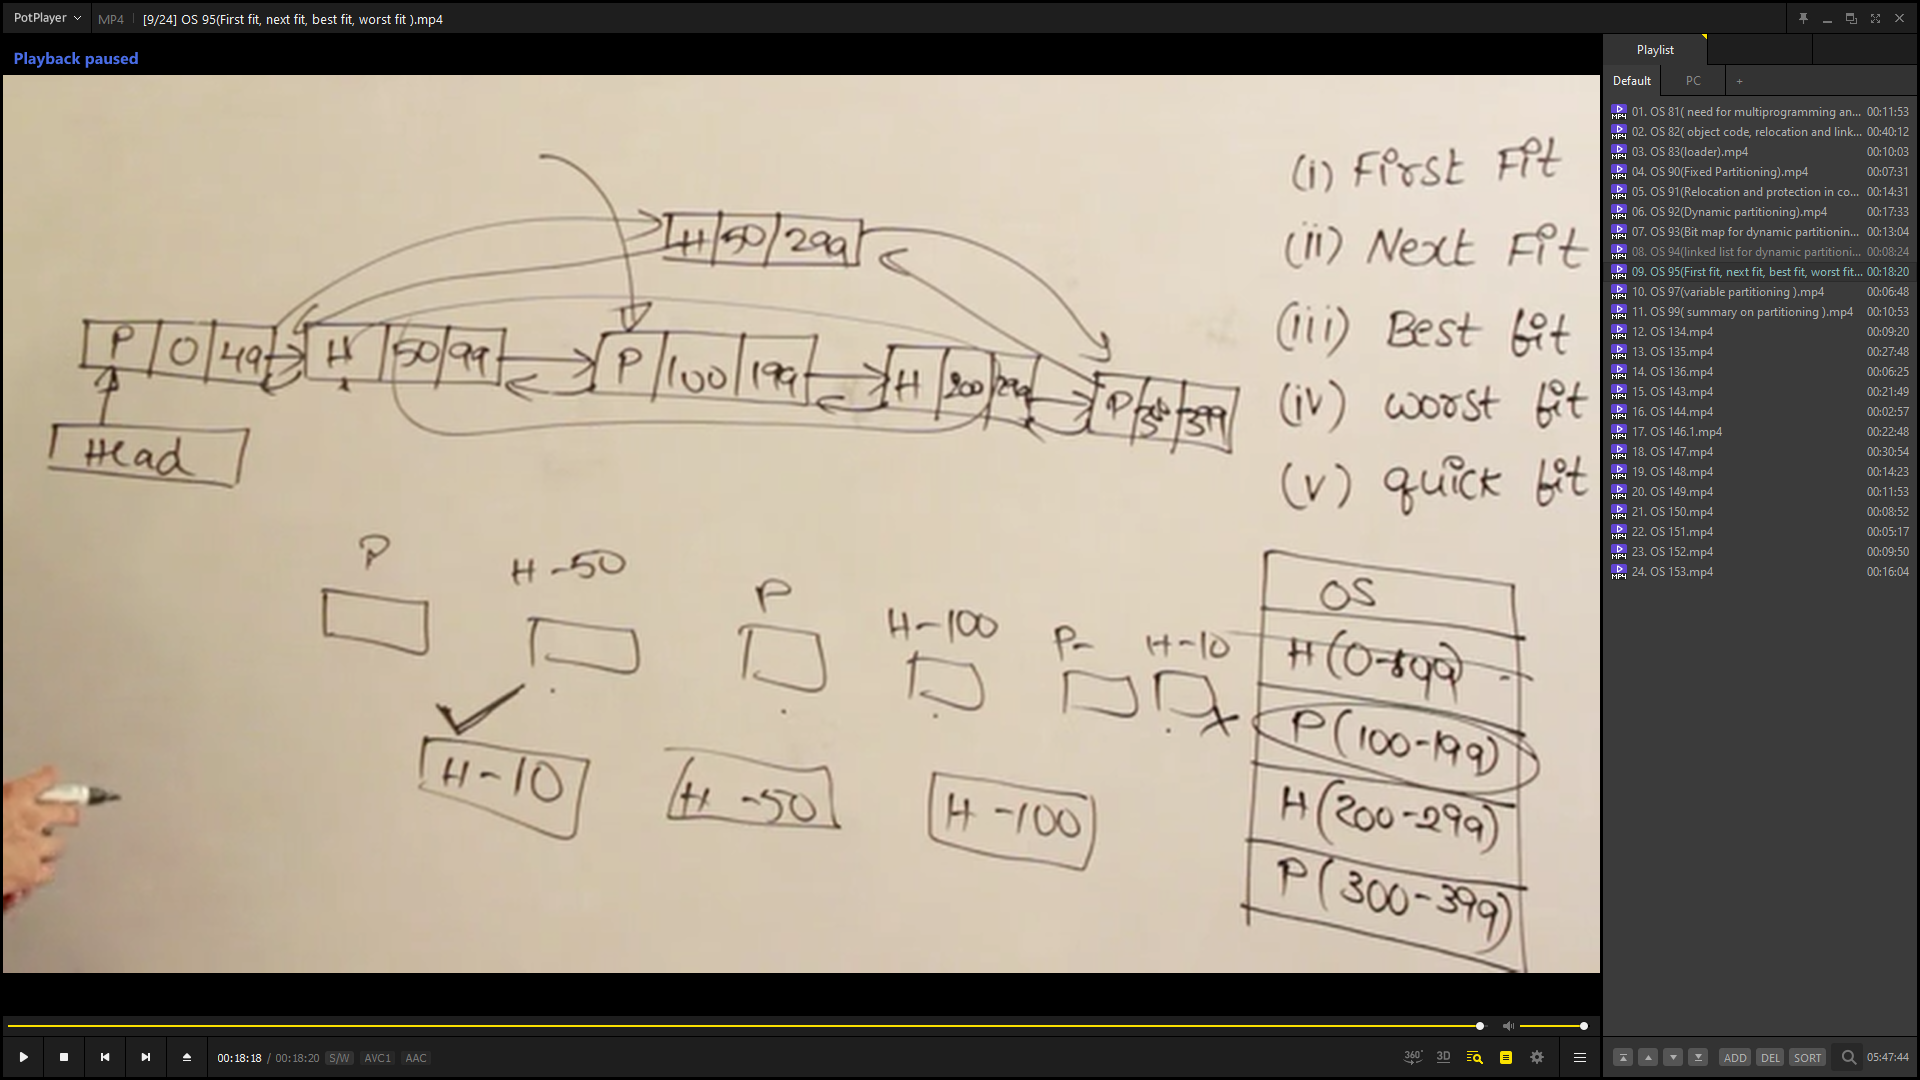 PotPlayer
MP4
[9/24] OS 95(First fit, next fit, best fit, worst fit ).mp4
Playback paused
(i) First Fit
(ii) Next Fit
(iii) Best fit
(iv) worst fit
(v) quick fit
H 50 299
P 0 49
H 50 99
P 100 199
H 200 299
P 399
Head
P
H-50
P
H-100
P-
H-10
H-10
H-50
H-100
OS
P(100-199)
H(200-299)
P(300-399)
00:18:18 / 00:18:20 S/W AVC1 AAC
360°
3D
Playlist
Default
PC
+
01. OS 81( need for multiprogramming an... 00:11:53
02. OS 82( object code, relocation and link... 00:40:12
03. OS 83(loader).mp4 00:10:03
04. OS 90(Fixed Partitioning).mp4 00:07:31
05. OS 91(Relocation and protection in co... 00:14:31
06. OS 92(Dynamic partitioning).mp4 00:17:33
07. OS 93(Bit map for dynamic partitionin... 00:13:04
08. OS 94(linked list for dynamic partitioni... 00:08:24
09. OS 95(First fit, next fit, best fit, worst fit... 00:18:20
10. OS 97(variable partitioning ).mp4 00:06:48
11. OS 99( summary on partitioning ).mp4 00:10:53
12. OS 134.mp4 00:09:20
13. OS 135.mp4 00:27:48
14. OS 136.mp4 00:06:25
15. OS 143.mp4 00:21:49
16. OS 144.mp4 00:02:57
17. OS 146.1.mp4 00:22:48
18. OS 147.mp4 00:30:54
19. OS 148.mp4 00:14:23
20. OS 149.mp4 00:11:53
21. OS 150.mp4 00:08:52
22. OS 151.mp4 00:05:17
23. OS 152.mp4 00:09:50
24. OS 153.mp4 00:16:04
ADD DEL SORT 05:47:44